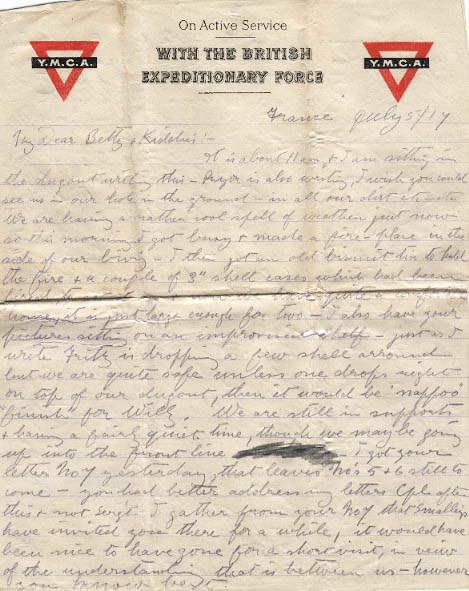 On Active Service
WITH THE BRITISH
EXPEDITIONARY FORCE
Y.M.C.A.
Y.M.C.A.
France July 5/17
My dear Betty & Kiddies:-
It is about 11 am & I am sitting in
the dugout writing this - Pryor is also writing, I wish you could
see us in our hole in the ground - in all our dirt etc etc
We are having a rather cool spell of weather just now
so this morning I got busy & made a fire-place in the
side of our & then got an old biscuit tin to hold
the fire & a couple of 3" shell cases which had been
we have quite a
house, it is just large enough for two - I also have your
pictures sitting on an improvised shelf - just as I
write Fritz is dropping a few shell arround
but we are quite safe unless one drops right
on top of our dugout, then it would be "nappoo"
"finish" for Will. We are still in supports
& having a fairly quiet time, though we may be going
up into the front line I got your
letter No 7 yesterday, that leaves No's 5 & 6 still to
come - you had better address my letters Cpl after
this & not Sergt. I gather from your No 7 that Smalleys
have invited you there for a while, it would have
been nice to have gone for a short visit, in veiw
of the understanding that is between us - however
you know best.